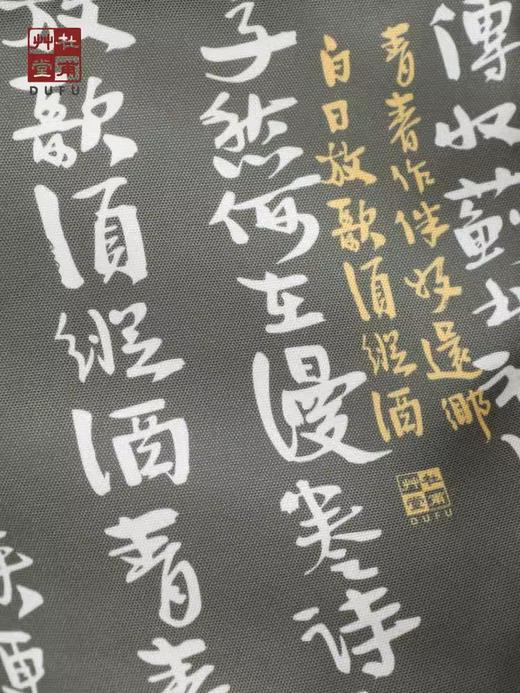 杜甫
艸堂
DUFU
傳收薊北
青春作伴好還鄉
白日放歌須縱酒
杜甫
艸堂
DUFU
子愁何在漫卷詩
放歌須縱酒青春